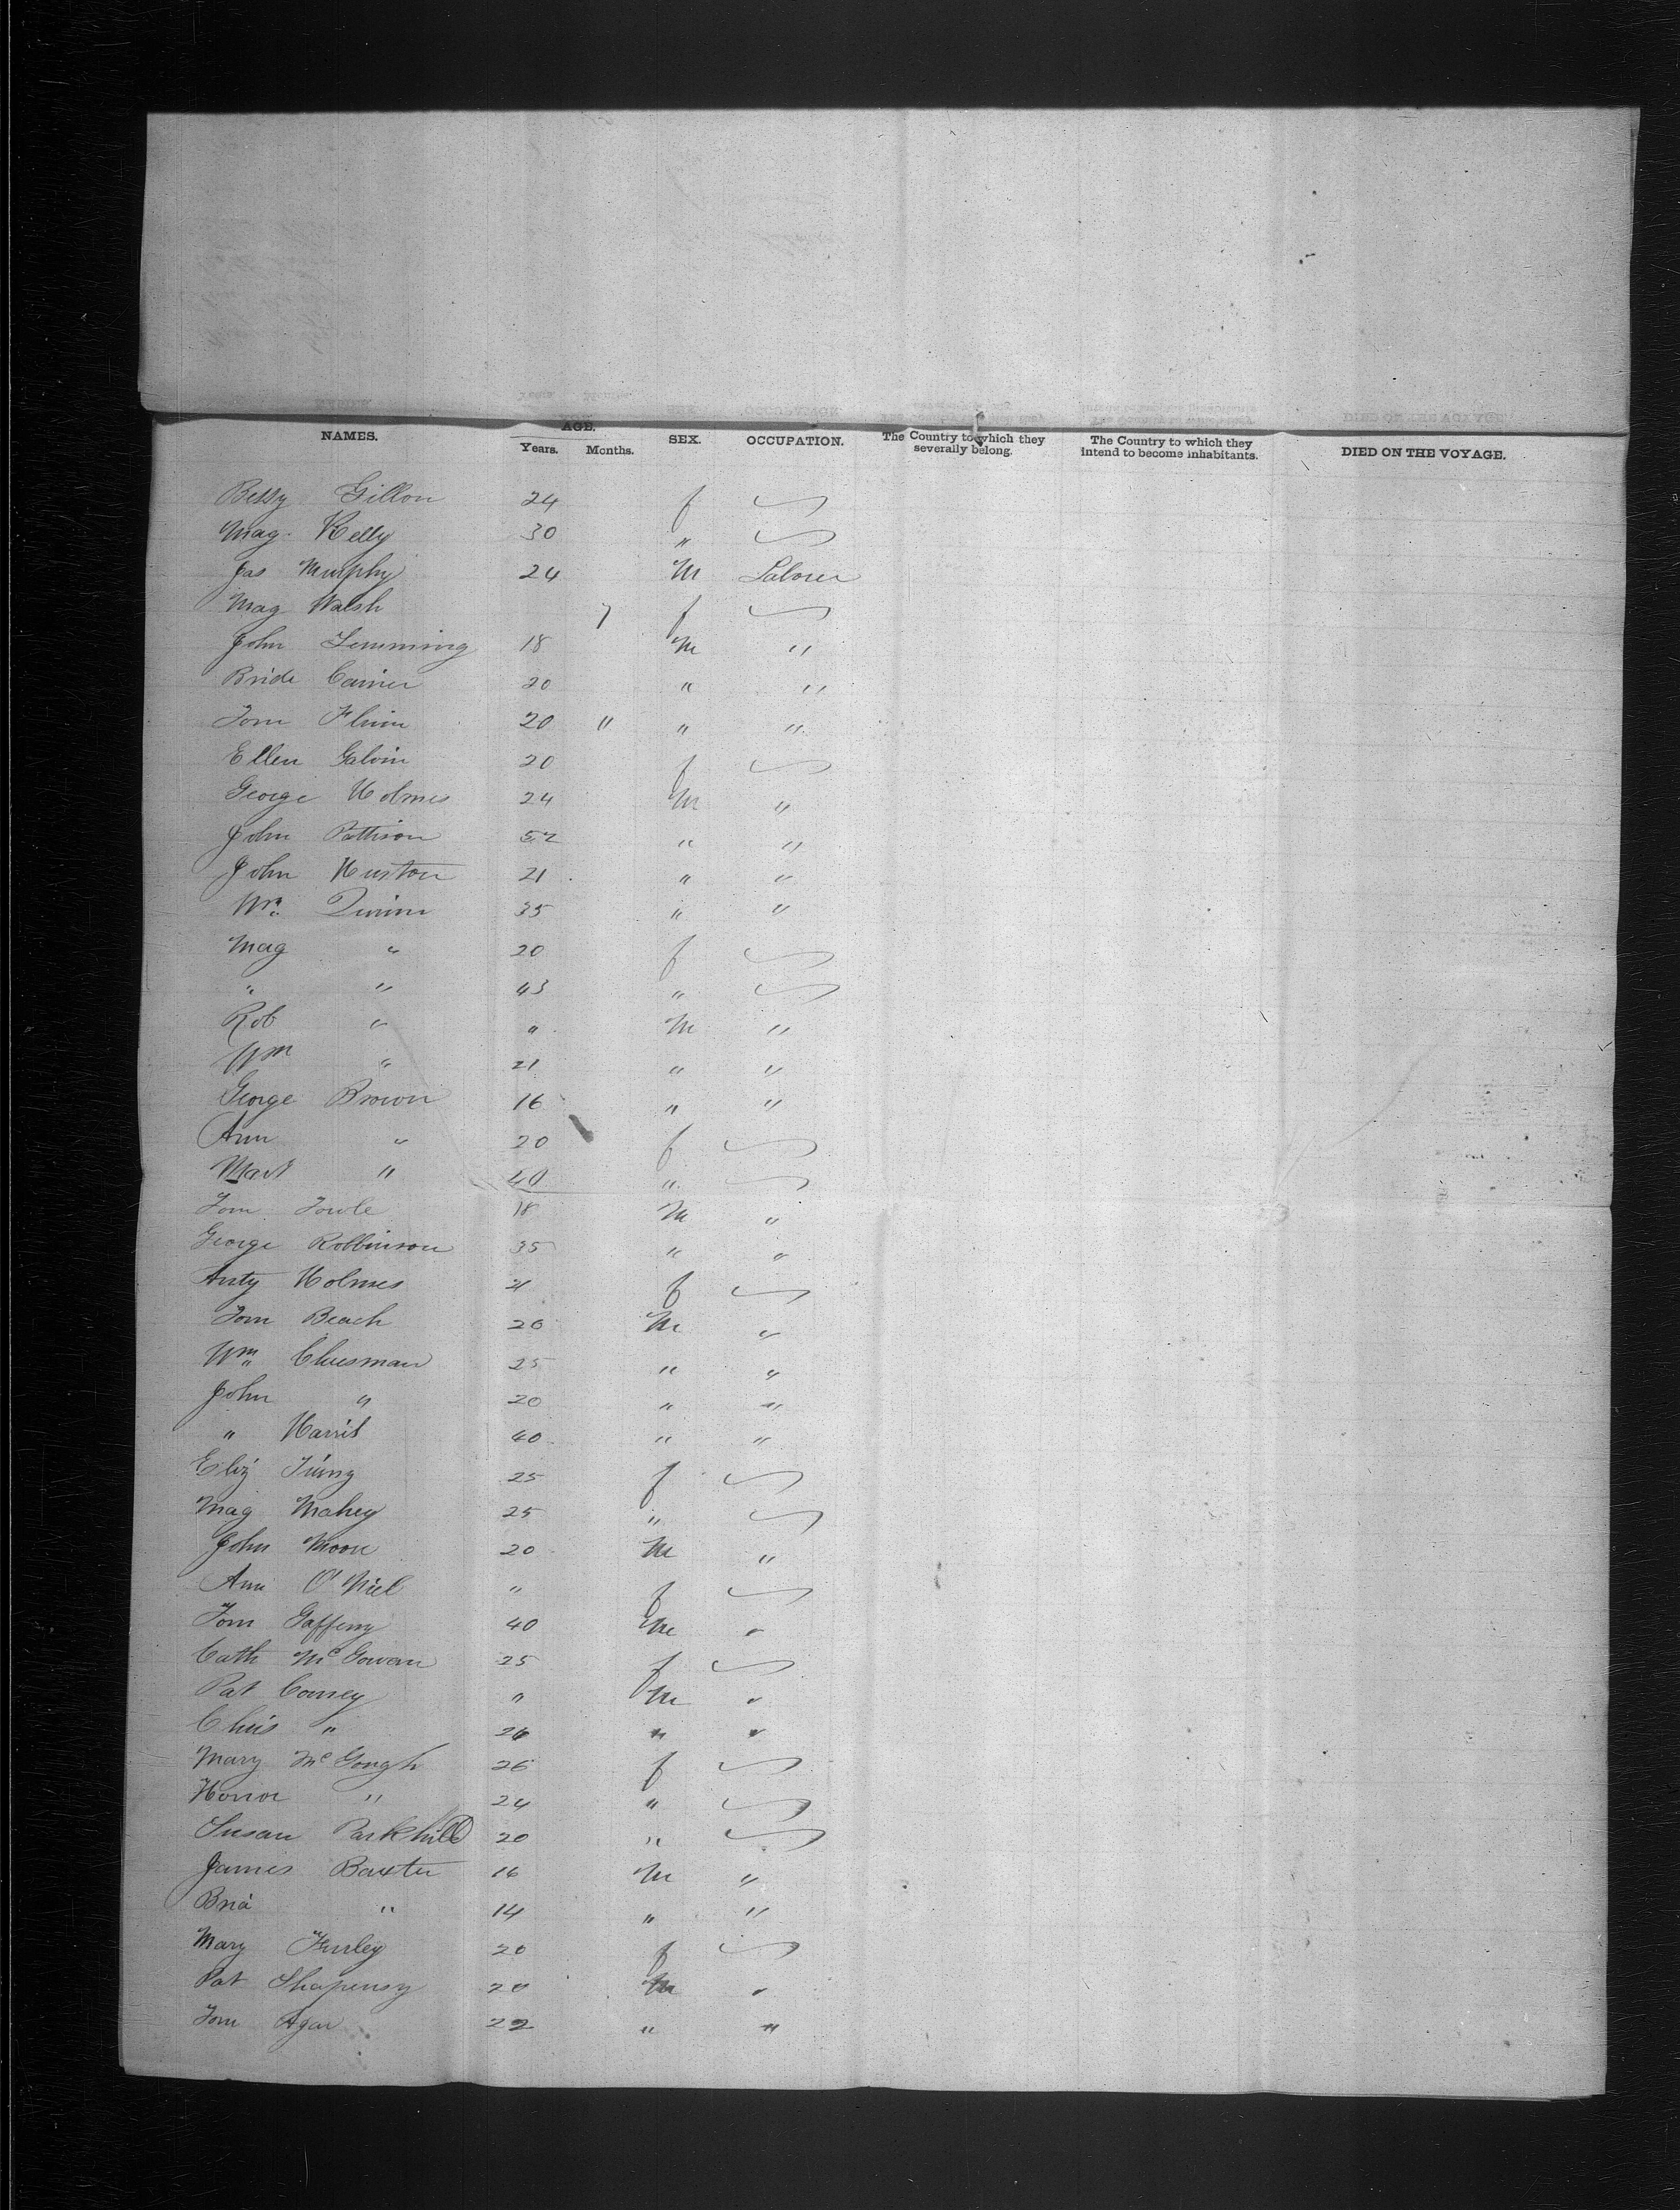 NAMES. AGE. Years. Months. SEX. OCCUPATION. The Country to which they severally belong. The Country to which they intend to become inhabitants. DIED ON THE VOYAGE.
Bessy Gillon 24 f
Mag. Kelly 30 "
Jas Murphy 24 M Laborer
Mag Walsh 7 f
John Lemming 18 M "
Bride 20 " "
Tom 20 " " "
Ellen Galvin 20 f
George Holmes 24 M "
John Pattison 52 " "
John Huston 21 " "
Wm Quinn 35 " "
Mag " 20 f
" " 43 "
Rob " " M "
Wm " 21 " "
George Brown 16 " "
Ann " 20 f
" 40 "
Tom 18 M "
George Robbinson 35 " "
Holmes 21 f
Tom Beach 20 M "
Wm 25 " "
John " 20 " "
" Harris 40 " "
Eliz 25 f
Mag Mahey 25 "
John Moon 20 M "
Ann O'Niel " f
Tom Gaffeny 40 M "
Cath McGowan 25 f
Pat " M "
Chris " 26 " "
Mary McGough 26 f
Honor " 24 "
Susan Parkhill 20 "
James Baxter 16 M "
" 14 " "
Mary 20 f
Pat 20 M "
Tom Agar 22 " "